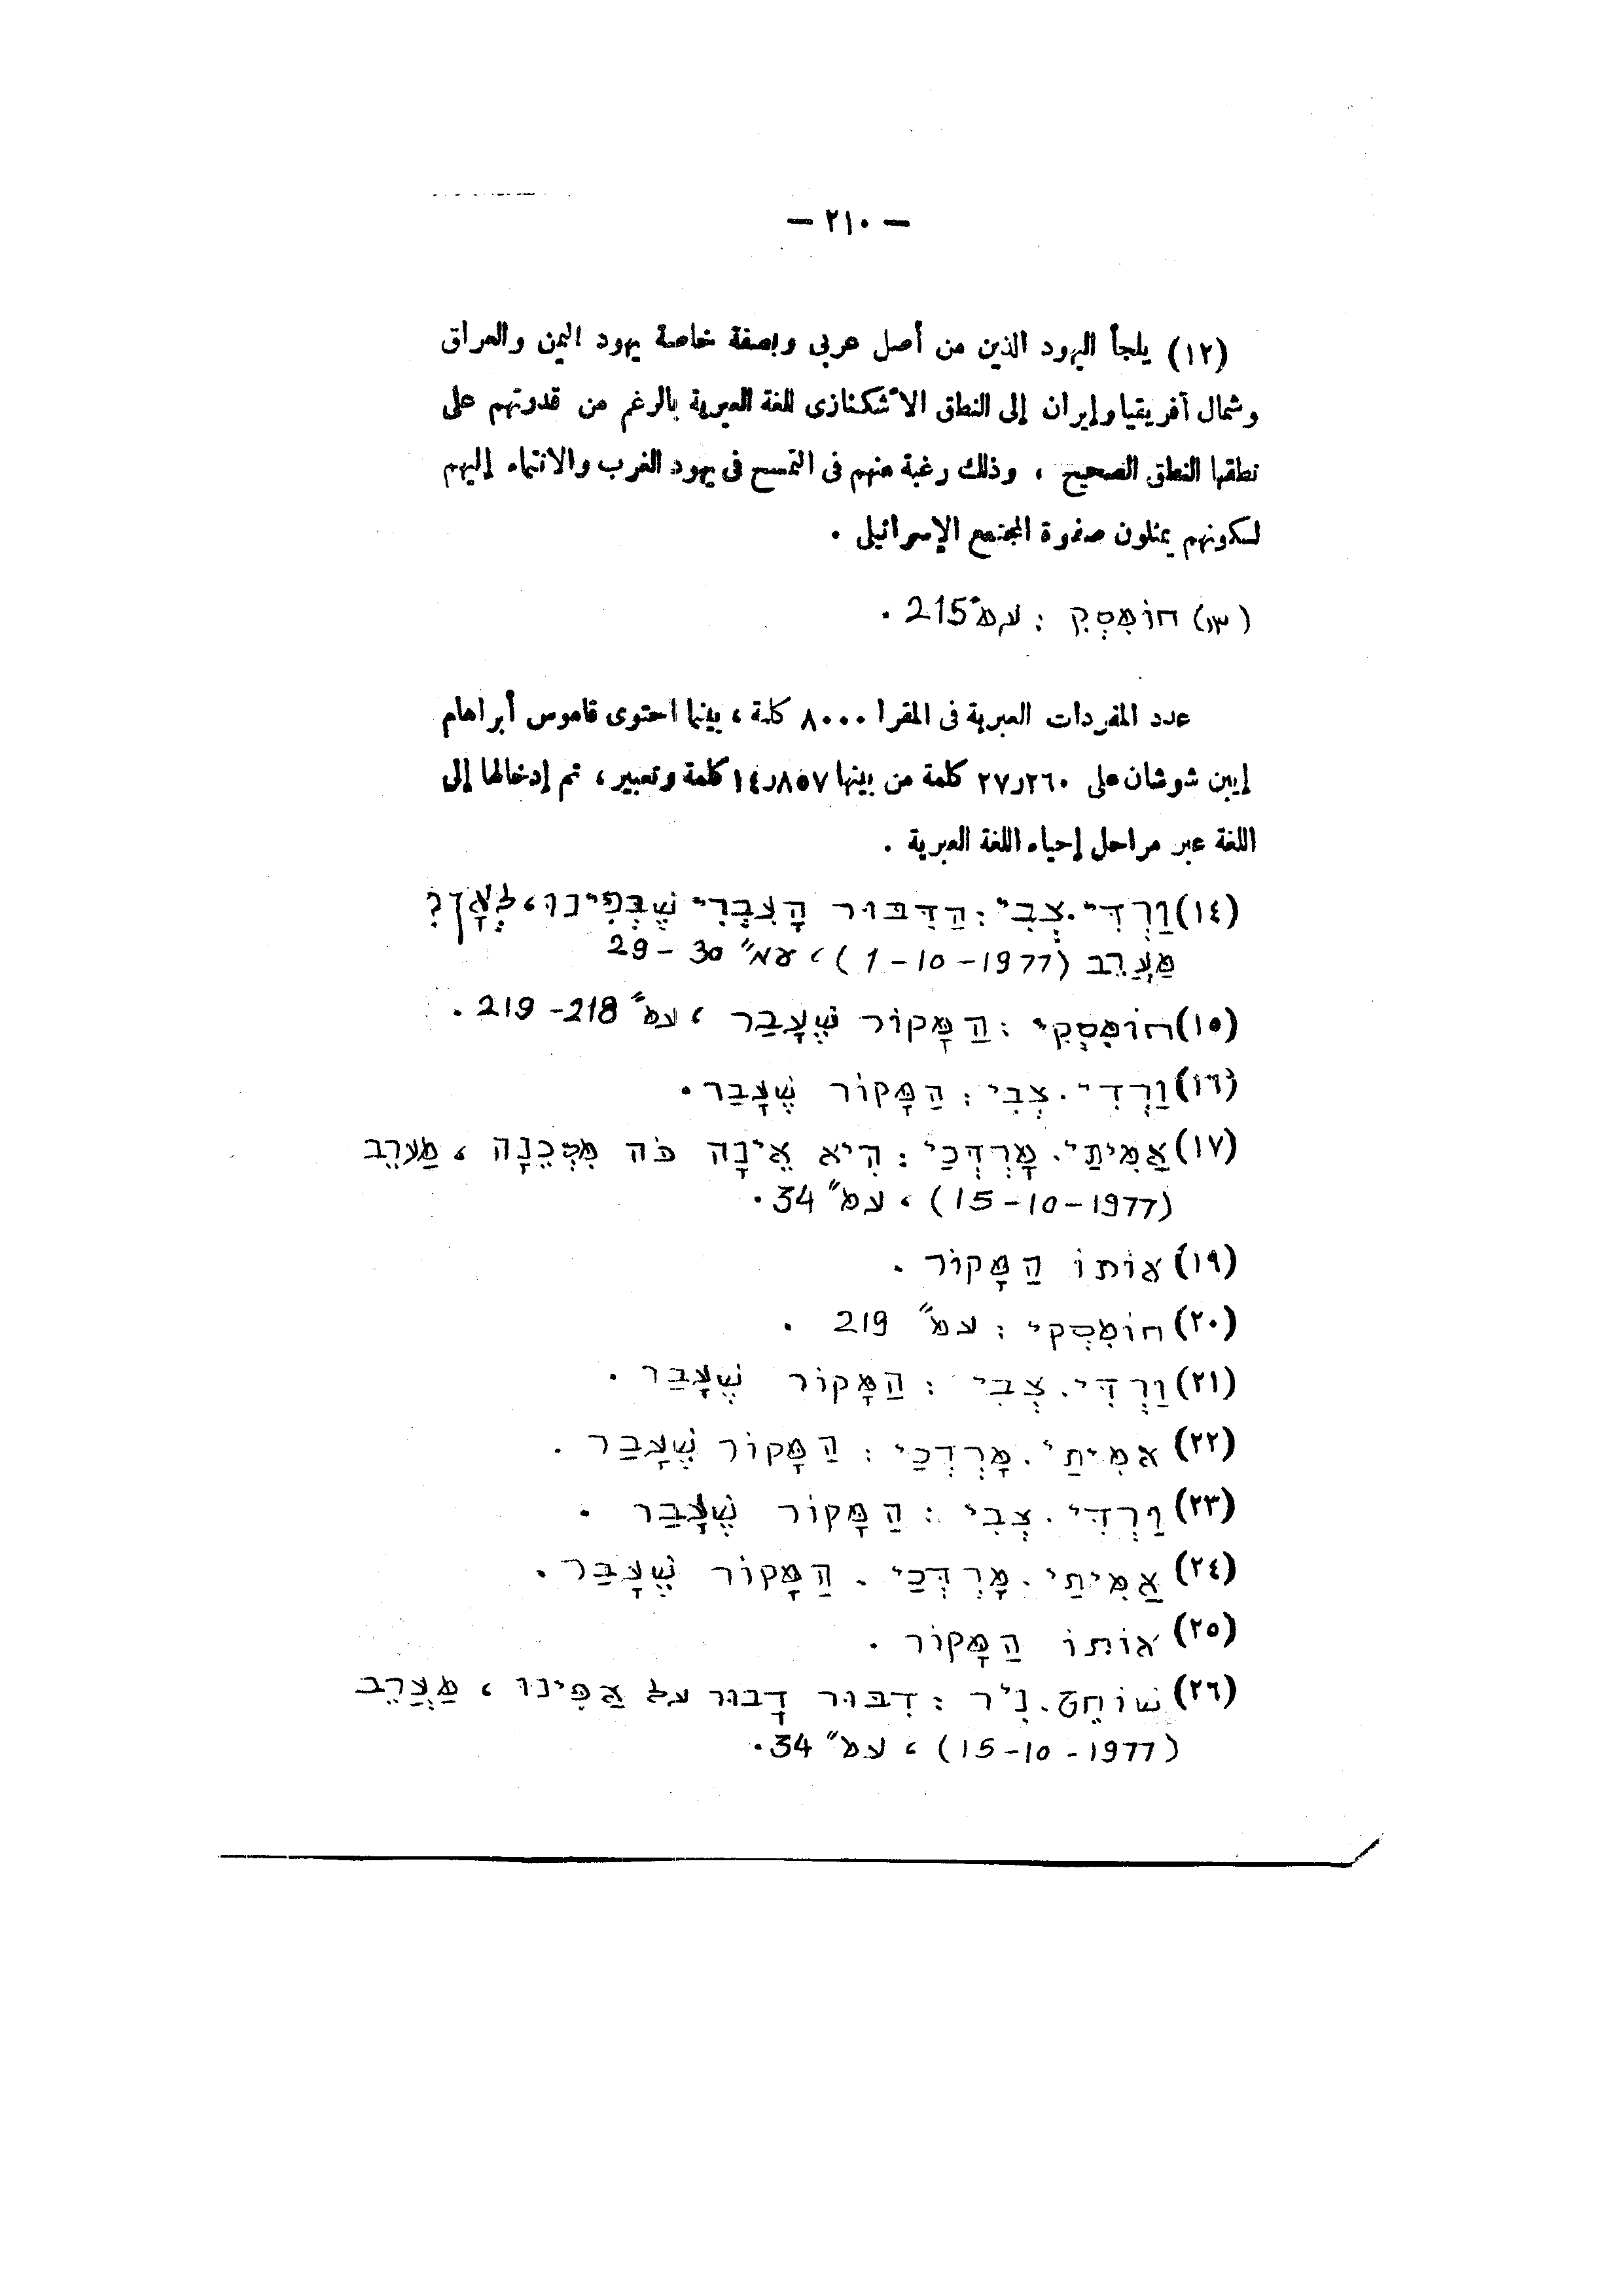 — ٢١٠ —
(١٢) يلجأ اليهود الذين من أصل عربى وبصفة خاصة يهود اليمن والعراق
وشمال أفريقيا وإيران إلى النطق الأشكنازى للغة العبرية بالرغم من قدرتهم على
نطقها النطق الصحيح ، وذلك رغبة منهم فى التمسح فى يهود الغرب والانتماء إليهم
لكونهم يمثلون صفوة المجتمع الإسرائيلى .
(١٣) חוֹמְסְקִ : עמ״ 215 .
عدد المفردات العبرية فى المقرا ٨٠٠٠ كلمة ، بينما احتوى قاموس أبراهام
إيبن شوشان على ٢٧٫٢٦٠ كلمة من بينها ١٤٫٨٥٧ كلمة وتعبير ، تم إدخالها إلى
اللغة عبر مراحل إحياء اللغة العبرية .
(١٤) וַרְדִּי. צְבִי : הַדִּבּוּר הָעִבְרִי שֶׁבְּפִינוּ ، לְאָן ?
מַעֲרֵב (1-10-1977) ، עמ״ 29 – 30
(١٥) חוֹמְסְקִי : הַמָּקוֹר שֶׁעָבַר ، עמ״ 218 - 219 .
(١٦) וַרְדִי. צְבִי : הַמָּקוֹר שֶׁעָבַר .
(١٧) אֲמִיתַי. מָרְדְּכַי : הִיא אֵינָה כֹּה מִסְכֵּנָה ، מַעֲרֵב
(15-10-1977) ، עמ״ 34 .
(١٩) אוֹתוֹ הַמָּקוֹר .
(٢٠) חוֹמְסְקי : עמ״ 219 .
(٢١) וַרְדִּי. צְבִי : הַמָּקוֹר שֶׁעָבַר .
(٢٢) אמִיתַי. מָרְדְּכַי : הַמָּקוֹר שֶׁעָבַר .
(٢٣) וַרְדִי. צְבִי : הַמָּקוֹר שֶׁעָבַר .
(٢٤) אֲמִיתַי. מָרְדְּכַי . הַמָּקוֹר שֶׁעָבַר .
(٢٥) אוֹתוֹ הַמָּקוֹר .
(٢٦) שׁוֹחֵט. נִיר : דִבּוּר דָבוּר על אֲפֵינוּ ، מַעֲרֵב
(15-10-1977) ، עמ״ 34 .